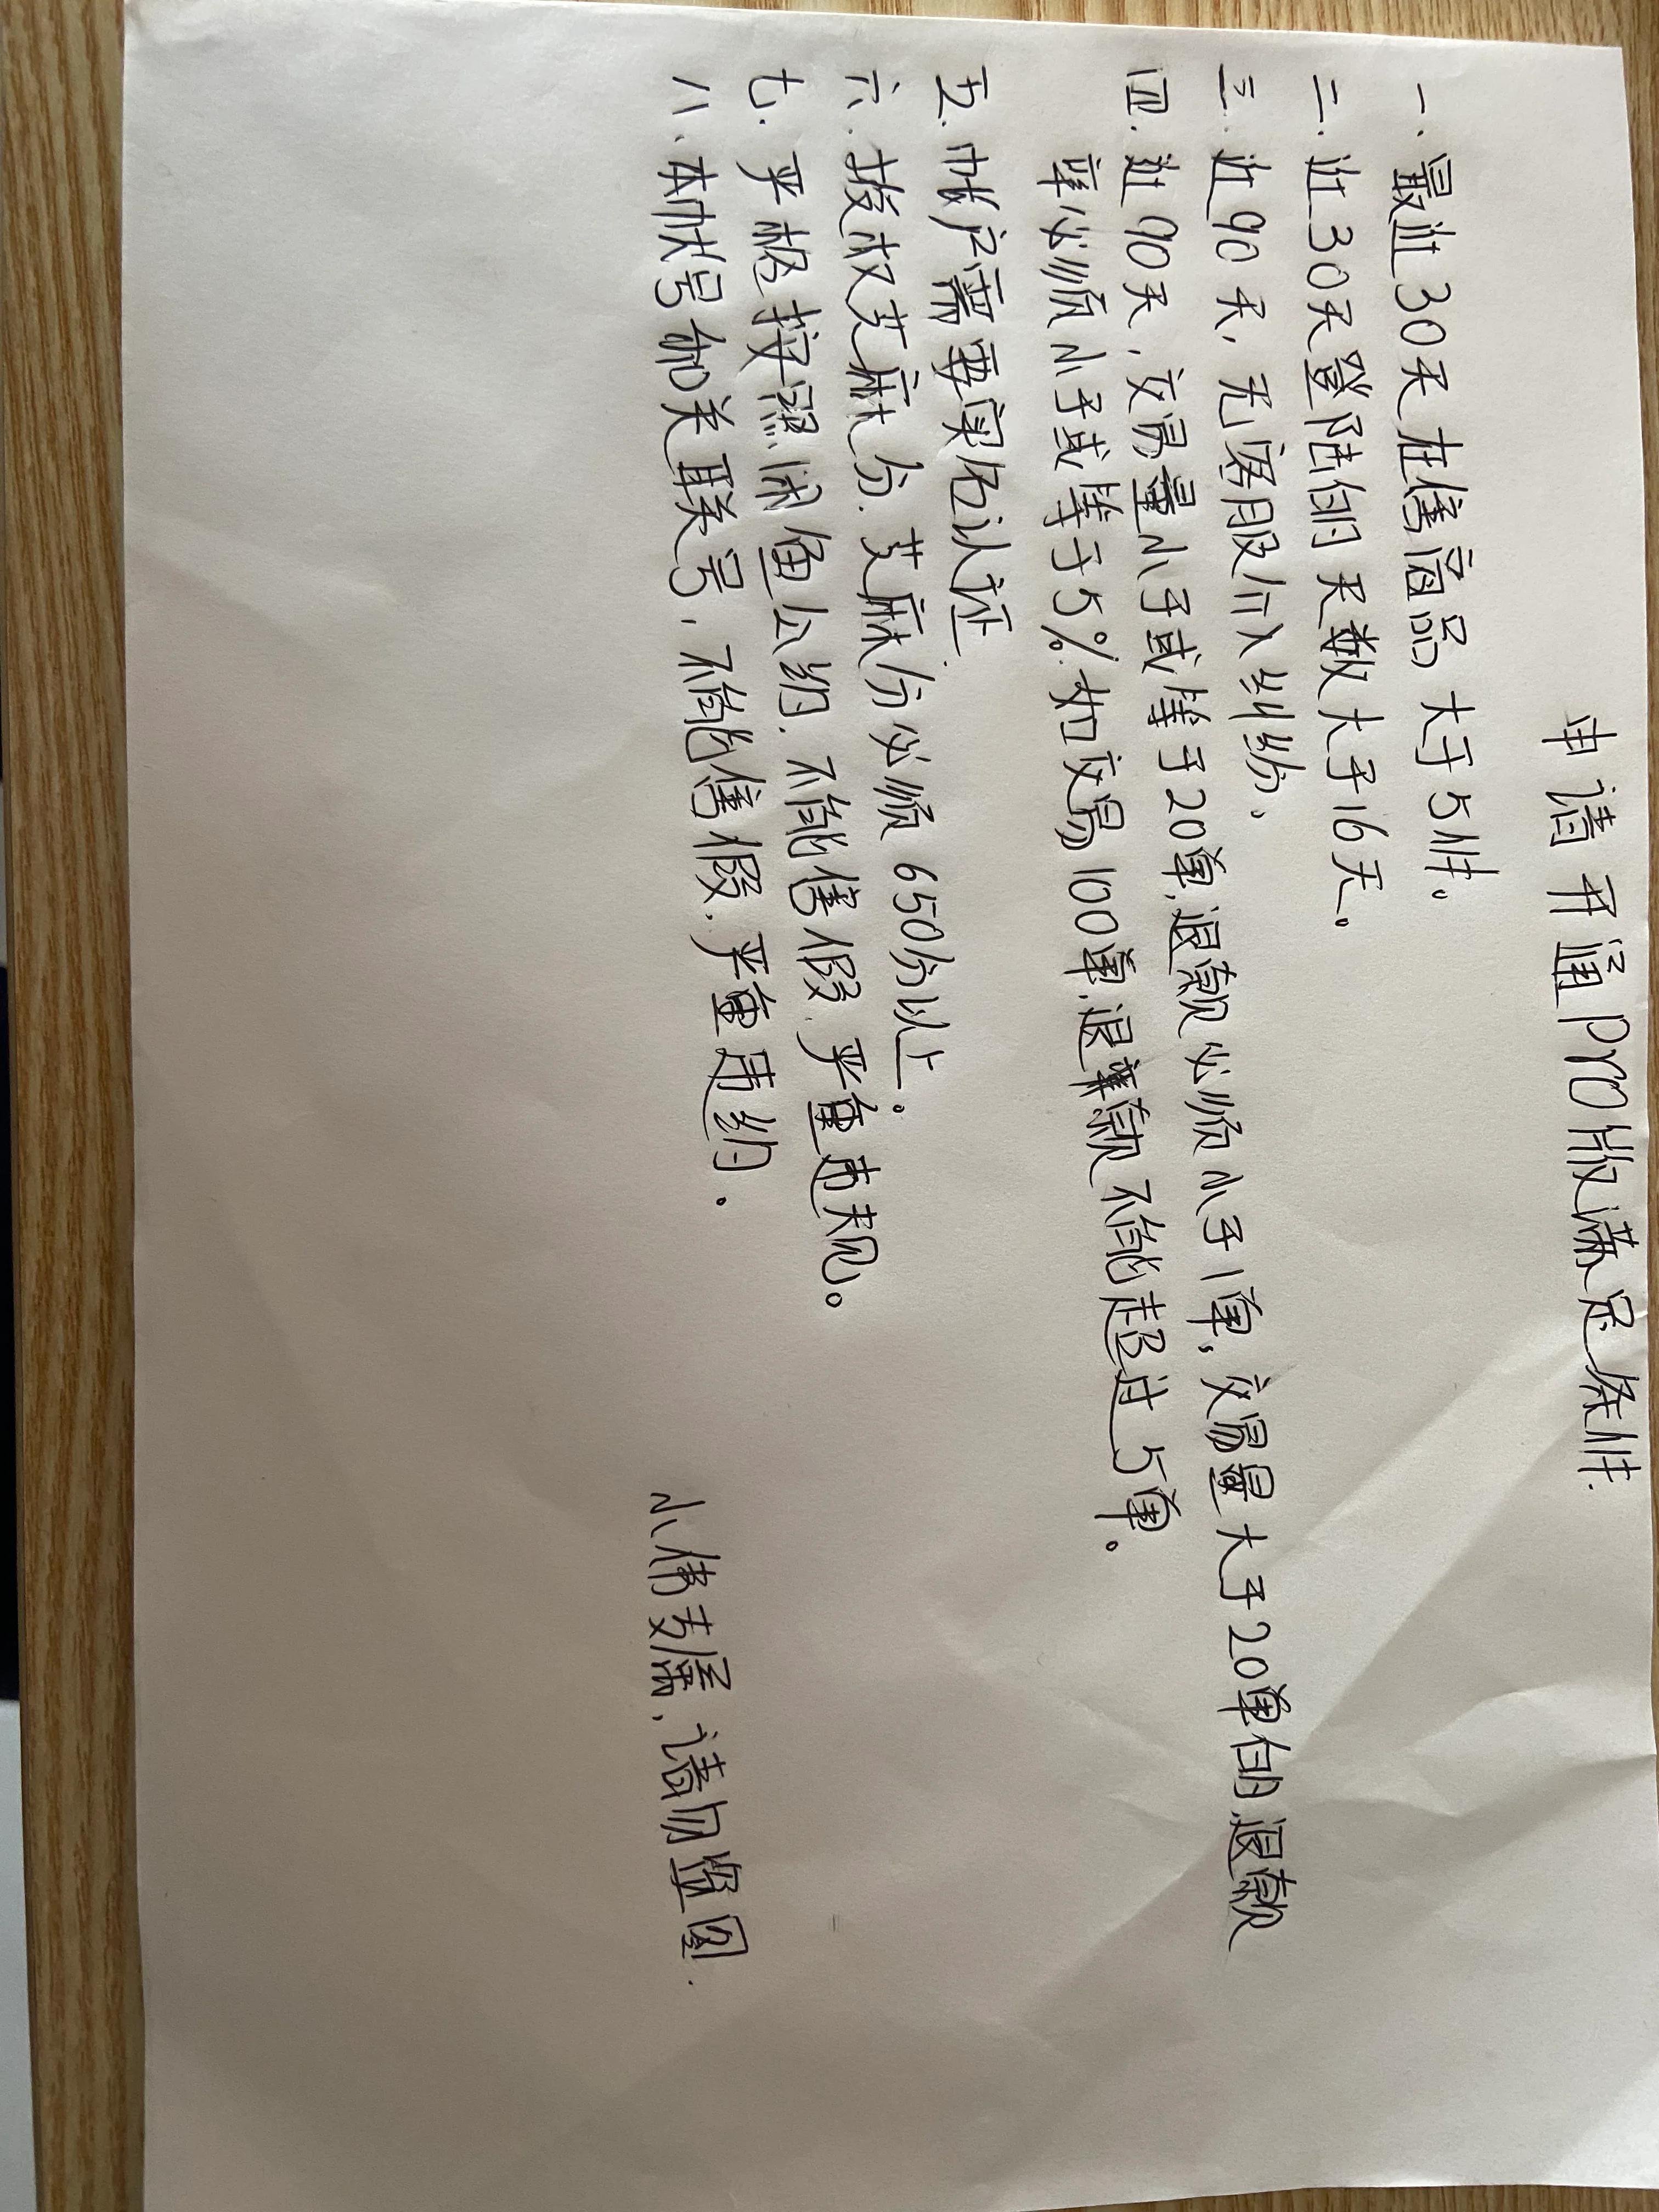 申请开通pro版满足条件.
一、最近30天在售商品大于5件。
二.近30天登陆的天数大于16天。
三.近90天,无客服介入纠纷、
四.近90天,交易量小于或等于20单,退款必须小于1单,交易量大于20单的退款
率必须小于或等于5%.如交易100单,退款不能超过5单。
五.帐户需要实名认证.
六.授权芝麻分.芝麻分必须650分以上;
七.严格按照闲鱼公约.不能售假.严重违规。
八.本帐号加关联号,不能售假.严重违约.
小伟专属,请勿盗图.